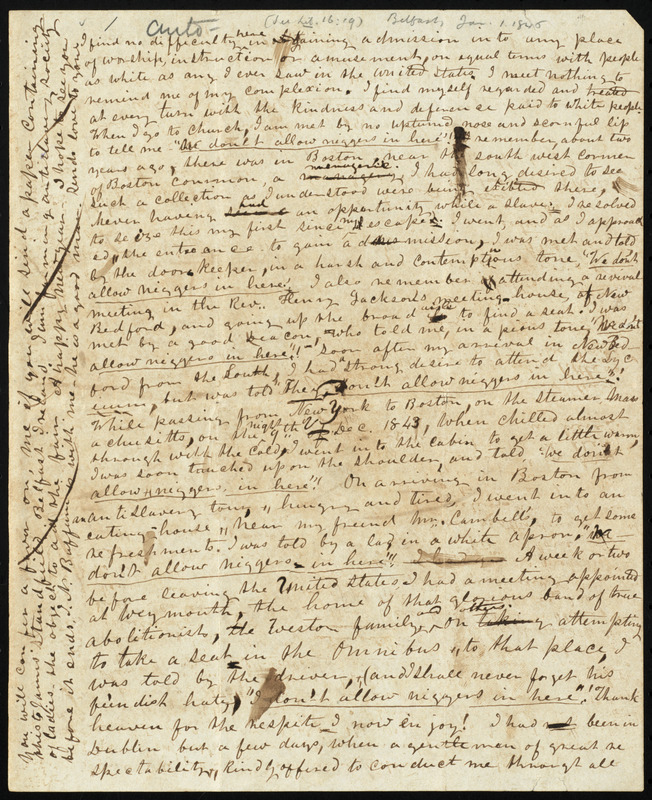 Auto- (See Lib. 16:19) Belfast, Jan. 1. 1846
here
I find no difficulty in gaining admission into any place
of worship, instruction or amusement, on equal terms with people
as white as any I ever saw in the united states. I meet nothing to
remind me of my complexion. I find myself regarded and treated
at every turn with the kindness and deference paid to white people.
When I go to church, I am met by no upturned nose and scornful lip
to tell me "We don't allow niggers in here"! I remember, about two
years ago, there was in Boston near the south west corner
of Boston common, a menagerie I had long desired to see
such a collection as I understood were being exited there,
never having had an opportunity while a slave. I resolved
to seize this my first since my escape. I went, and as I approach
ed, the entrance to gain admission, I was met and told
by the door keeper, in a harsh and contemptious tone, "We don't
allow niggers in here". I also remember attending a revival
meeting in the Rev. Henry Jackson's meeting-house, at New
Bedford, and going up the broad aisle to find a seat. I was
met by a good Deacon who told me, in a pious tone, "We don't
allow niggers in here"! Soon after my arrival in New Bed
ford from the South, I had strong desire to attend the Lyc
eum, but was told "They don't allow niggers in here"!
While passing from New York to Boston, on the steamer Mass
achusetts, on the night 9th Dec. 1843, When chilled almost
through with the cold, I went in to the cabin to get a little warm,
I was soon touched upon the shoulder, and told "we don't
allow niggers in here"! On arriving in Boston from
an anti slavery tour, hungry and tired, I went in to an
eating-house, near my freind Mr. Cambell's, to get some
refreshments. I was told by a lad in a white apron, "We
don't allow niggers in here"! A week or two
before leaving the United States I had a meeting appointed
at Weymouth, the home of that glorious band of true
abolitionists, the Weston family, and others. On attempting
to take a seat in the Omnibus to that place, I
was told by the driver, (and I shall never forget his
feindish hate), "I don't allow niggers in here"! Thank
heaven for the respite I now enjoy! I had not been in
Dublin but a few days, when a gentleman of great re
spectability, kindly offired to conduct me through all
you will confer a favor on me if you will send a paper containing
this to James Standfield Belfast Ireland. I am forming anti slavery society
of ladies. the object to aid the fair. A happy new year. I hope to see you
before it ends. J. N. Buffum is with me he is a good man. Sends love to you.